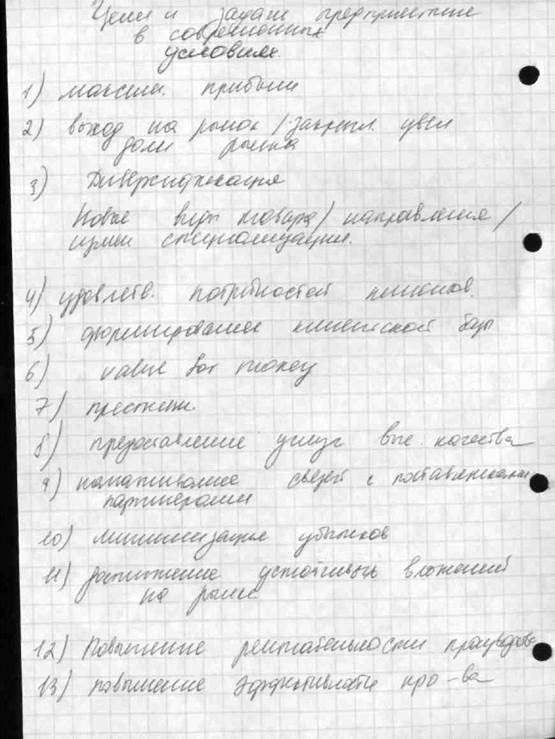 Цели и задачи предприятие
в современных
условиях.
1) максим. прибыли
2) выход на рынок / закрепл. увел
доли рынка
3) Диверсификация
Новые виды товара / направления /
специализации.
4) удовлетв. потребностей клиентов.
5) формирование клиентской базы
6) value for money
7) престиж
8) предоставление услуг выс. качества
9) налаживание связей с поставщиками
партнерами
10) минимизация убытков
11) достижение устойчивых вложений
на рынке
12) Повышение рентабельности производства
13) повышение эффективности про-ва